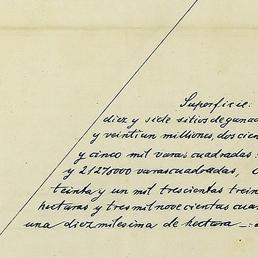 Superficie:
diez y siete sitios de ganad
y veintiun milliones, dos cien
y cinco mil varas cuadradas:
y 21275000 varas cuadradas,
teinta y un mil trescientas trein
hectaras y tres mil nove cientas cua
una diezmilesima de hectara